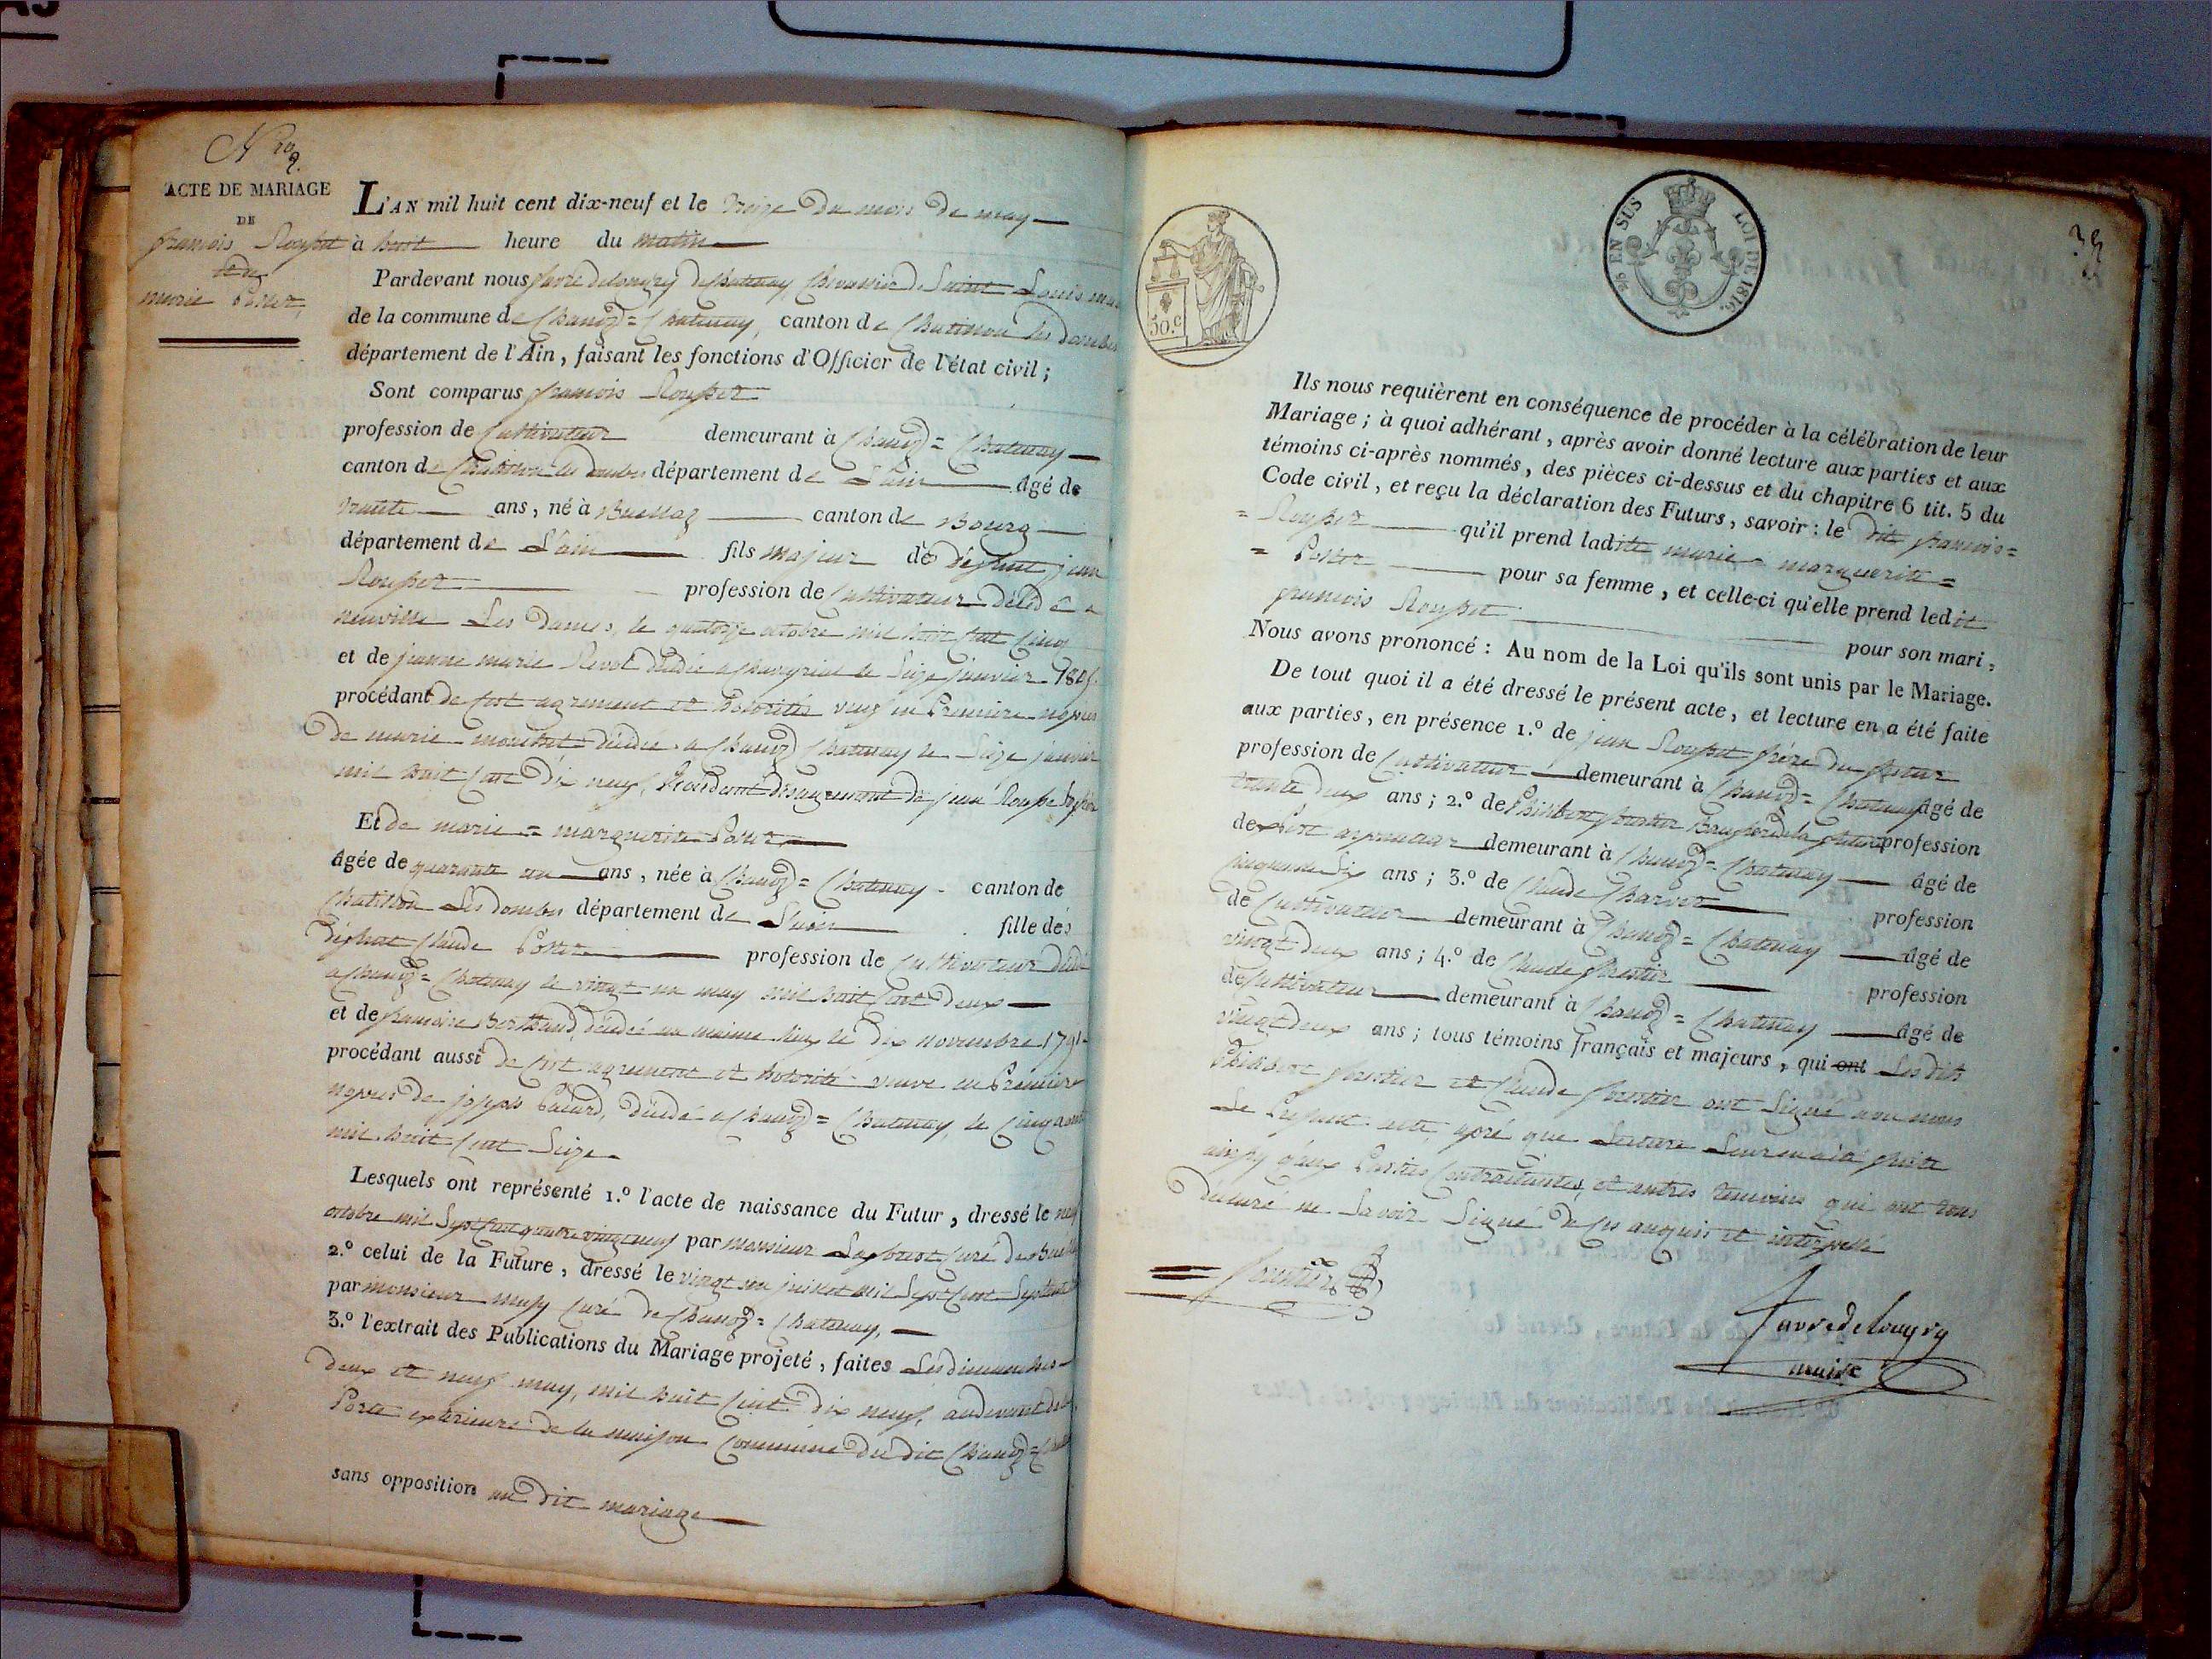 ACTE DE MARIAGE
DE
francois Roupet
et de
marie Poter,
L'AN mil huit cent dix-neuf et le treize du mois de may
à huit heure du matin
Pardevant nous favre delongry de chatenay Chevallier de Saint Louis
de la commune de Chanoz=Chatenay, canton de Chatillon les dombes
département de l'Ain, faisant les fonctions d'Officier de l'état civil;
Sont comparus francois Roupet
profession de Cultivateur demeurant à Chanoz=Chatenay
canton de Chatillon les dombes département de L'ain âgé de
trente ans, né à Buellaz canton de Bourg
département de L'ain fils majeur de défunt jean
Roupet profession de Cultivateur décédé a
neuville Les dames, le quatorze octobre mil huit cent cinq
et de jeanne marie Revol décédée a le Seize janvier
procédant de cest agrement et hotorités veuf en Premiere nopces
de marie décédée a Chanoz Chatenay le Seize janvier
mil huit cent dix neuf,
Et de marie=marguerite Poter
âgée de quarante un ans, née à Chanoz=Chatenay canton de
Chatillon Les dombes département de L'ain fille de
défunt Claude Poter profession de Cultivateur décédé
a Chanoz=Chatenay le vingt un may mil huit cent deux
et de francoise Berthaud, décédée au meme lieu le dix novembre 1791
procédant aussi de cest agrement et hotorité veuve en Premiere
nopces de joseph décédé a Chanoz=Chatenay, le cinq aout
mil huit cent Seize
Lesquels ont représenté 1.º l'acte de naissance du Futur, dressé le neuf
octobre mil Sept cent quatre vingt neuf par monsieur curé de Buellaz
2.º celui de la Future, dressé le vingt juillet mil Sept cent Septante
par monsieur curé de Chanoz=Chatenay,
3.º l'extrait des Publications du Mariage projeté, faites Les dimanches
deux et neuf may, mil huit cent dix neuf, audevant de la
Porte exterieure de la maison Commune du dit Chanoz=
sans opposition au dit mariage
50.c
EN SUS
LOI DE 1816.
Ils nous requièrent en conséquence de procéder à la célébration de leur
Mariage; à quoi adhérant, après avoir donné lecture aux parties et aux
témoins ci-après nommés, des pièces ci-dessus et du chapitre 6 tit. 5 du
Code civil, et reçu la déclaration des Futurs, savoir: le dit francois=
=Roupet qu'il prend ladite marie marguerite=
=Poter pour sa femme, et celle-ci qu'elle prend ledit
francois Roupet pour son mari,
Nous avons prononcé: Au nom de la Loi qu'ils sont unis par le Mariage.
De tout quoi il a été dressé le présent acte, et lecture en a été faite
aux parties, en présence 1.º de jean Roupet frére du futur
profession de Cultivateur demeurant à Chanoz=Chatenay âgé de
trente deux ans; 2.º de Philibert forestier profession
de demeurant à Chanoz=Chatenay âgé de
cinquante Six ans; 3.º de Claude Charvet profession
de Cultivateur demeurant à Chanoz=Chatenay âgé de
vingt deux ans; 4.º de Claude forestier profession
de Cultivateur demeurant à Chanoz=Chatenay âgé de
vingt deux ans; tous témoins français et majeurs, qui ont Les dits
Philibert forestier et Claude forestier ont Signé avec nous
Le Present acte, apré que Lecture Leur en a été faite
ainsy qaux Parties Contractantes, et autres temoins qui ont tous
déclaré ne Savoir Signé de ce anquis et interpellé
forestier
favre delongry
maire